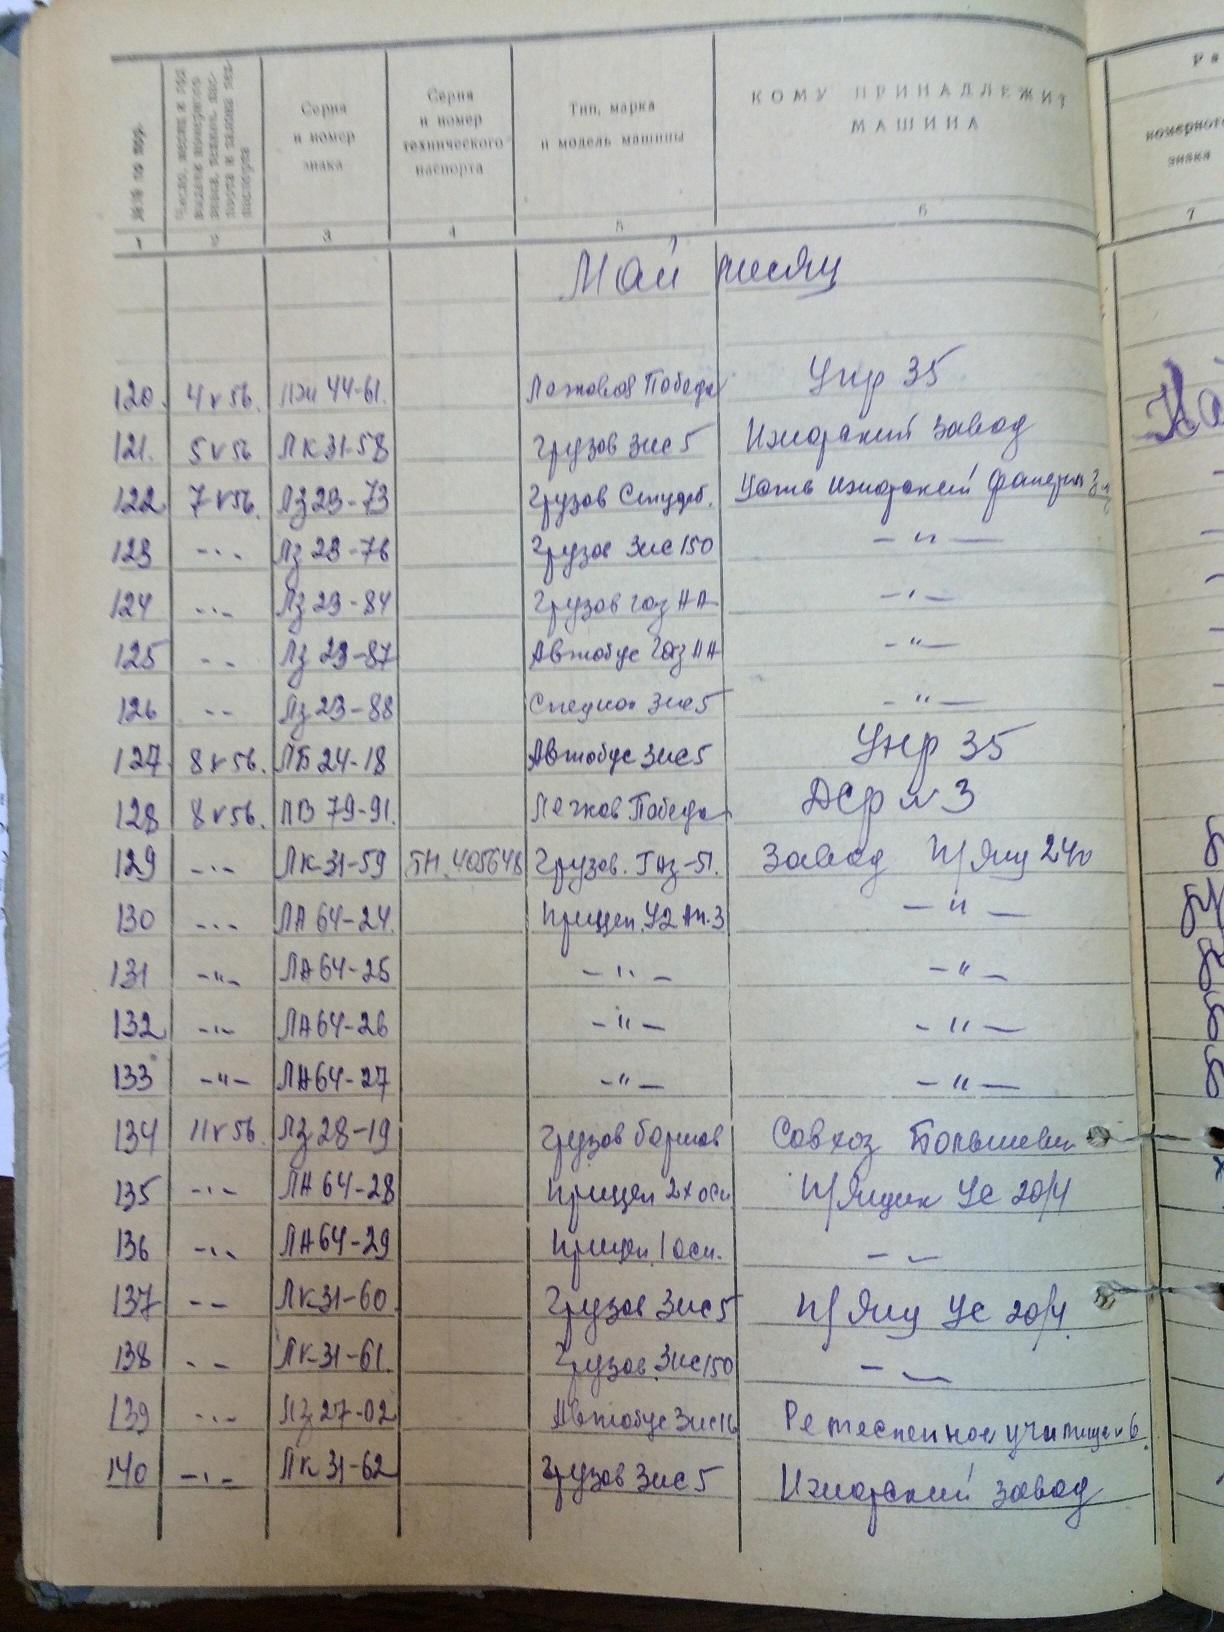 №№ по пор.
Число, месяц и год выдачи номерного знака, технич. паспорта и талона тех- паспорта
Серия и номер знака
Серия и номер технического паспорта
Тип, марка и модель машины
КОМУ ПРИНАДЛЕЖИТ МАШИНА
номерного знака
1 2 3 4 5 6 7
Май месяц
120. 4 V 56. 44-61. Победа Унр 35
121. 5 V 56 ЛК 31-58 Грузов Зис 5 Ижорский завод
122 7 V 56. Лз 23-73 Грузов Студеб. Усть Ижорский фанерн
123 -"- Лз 23-76 Грузов Зис 150 -"-
124 -"- Лз 23-84 Грузов Газ АА -"-
125 -"- Лз 23-87 Автобус Газ АА -"-
126 -"- Лз 23-88 Зис 5 -"-
127 8 V 56. ЛБ 24-18 Автобус Зис 5 Унр 35
128 8 V 56. ЛВ 79-91. Легков Победа ДСр № 3
129 -"- ЛК 31-59 ТН. 405648 Грузов. Газ-51. Завод П/Ящ 240
130 -"- ЛА 64-24. Прицеп. -"-
131 -"- ЛА 64-25 -"- -"-
132 -"- ЛА 64-26 -"- -"-
133 -"- ЛА 64-27 -"- -"-
134 11 V 56. Лз 28-19 Грузов бортов Совхоз Большевик
135 -"- ЛА 64-28 Прицеп 2х осн П/Ящик Ус 20/4
136 -"- ЛА 64-29 Прицеп. 1 осн. -"-
137 -"- ЛК 31-60. Грузов Зис 5 П/Ящ Ус 20/4.
138 -"- ЛК 31-61. Грузов. Зис 150 -"-
139 -"- Лз 27-02 Автобус Зис 16 Ремесленное училище № 6.
140 -"- ЛК 31-62 Грузов Зис 5 Ижорский завод